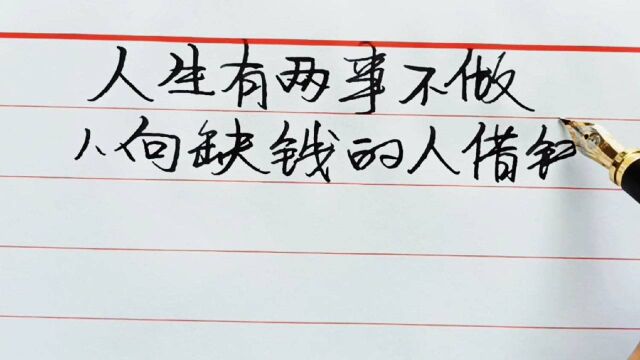 人生有两事不做
1、向缺钱的人借